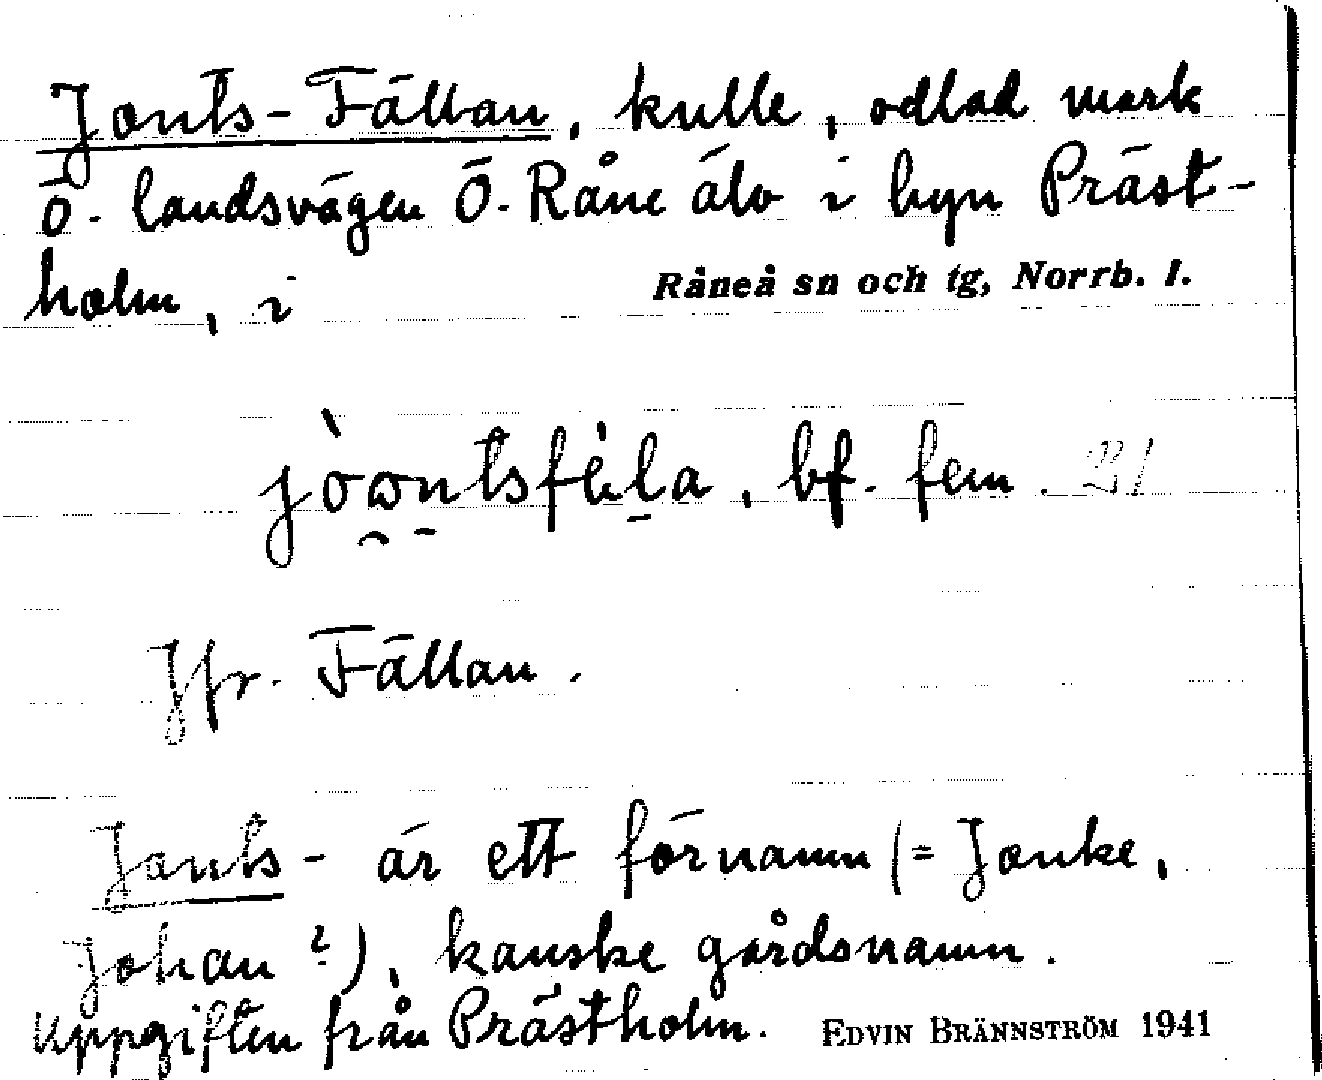 Jonts-Fällan, kulle, odlad mark
Ö. landsvägen Ö. Råne älv i byn Präst-
holm, i Råneå sn och tg, Norrb. l.
bf. fem.
Jfr. Fällan.
Jonts- är ett förnamn (= Jonke,
Johan?), kanske gårdsnamn.
Uppgiften från Prästholm. EDVIN BRÄNNSTRÖM 1941